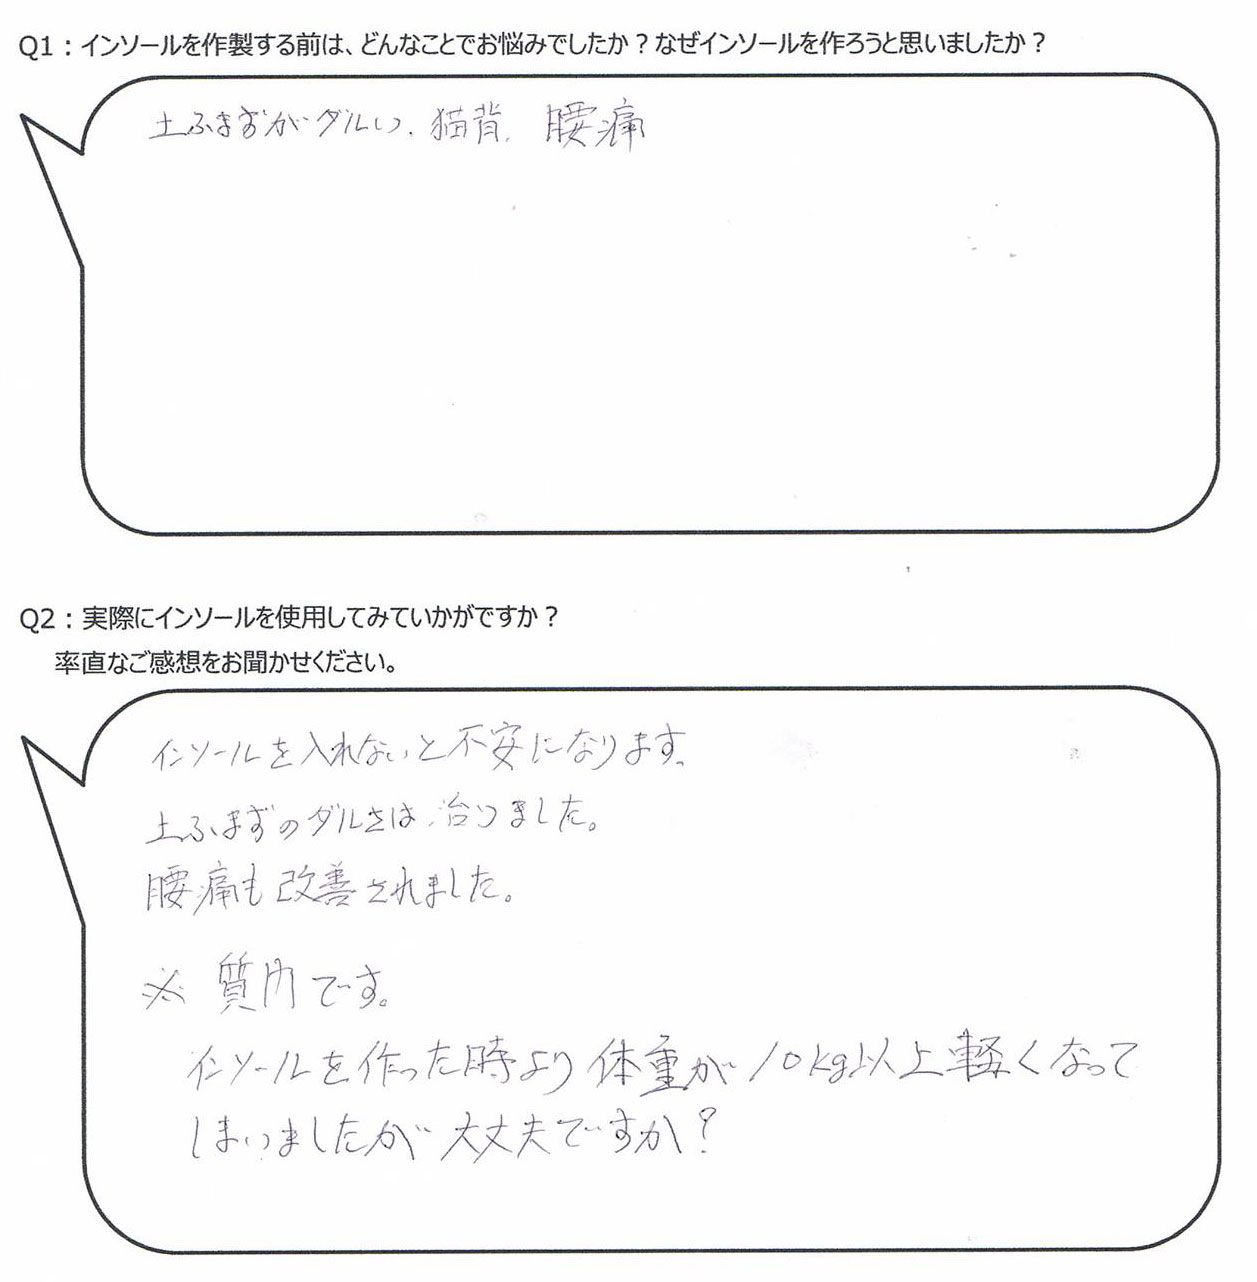 Q1：インソールを作製する前は、どんなことでお悩みでしたか？なぜインソールを作ろうと思いましたか？
土ふまずがダルい、猫背、腰痛
Q2：実際にインソールを使用してみていかがですか？
率直なご感想をお聞かせください。
インソールを入れないと不安になります。
土ふまずのダルさは治りました。
腰痛も改善されました。
※ 質問です。
インソールを作った時より体重が10kg以上軽くなって
しまいましたが大丈夫ですか？